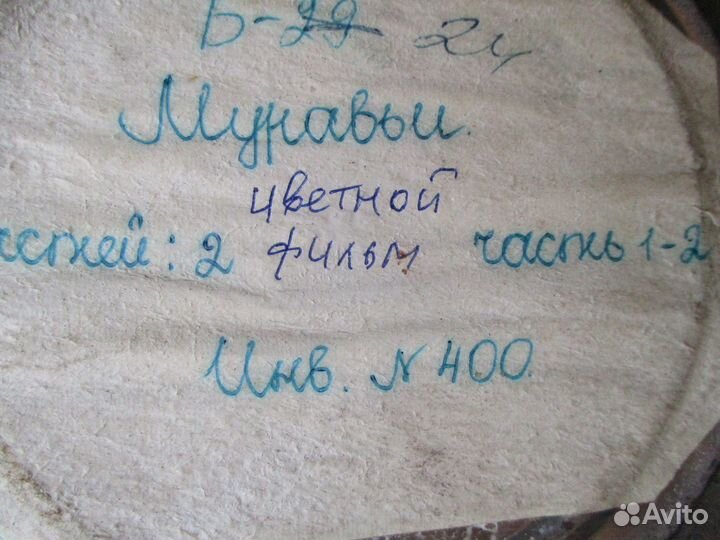 Б-22 24
Муравьи.
цветной
астей: 2 фильм часть 1-2
Инв. № 400.
Avito